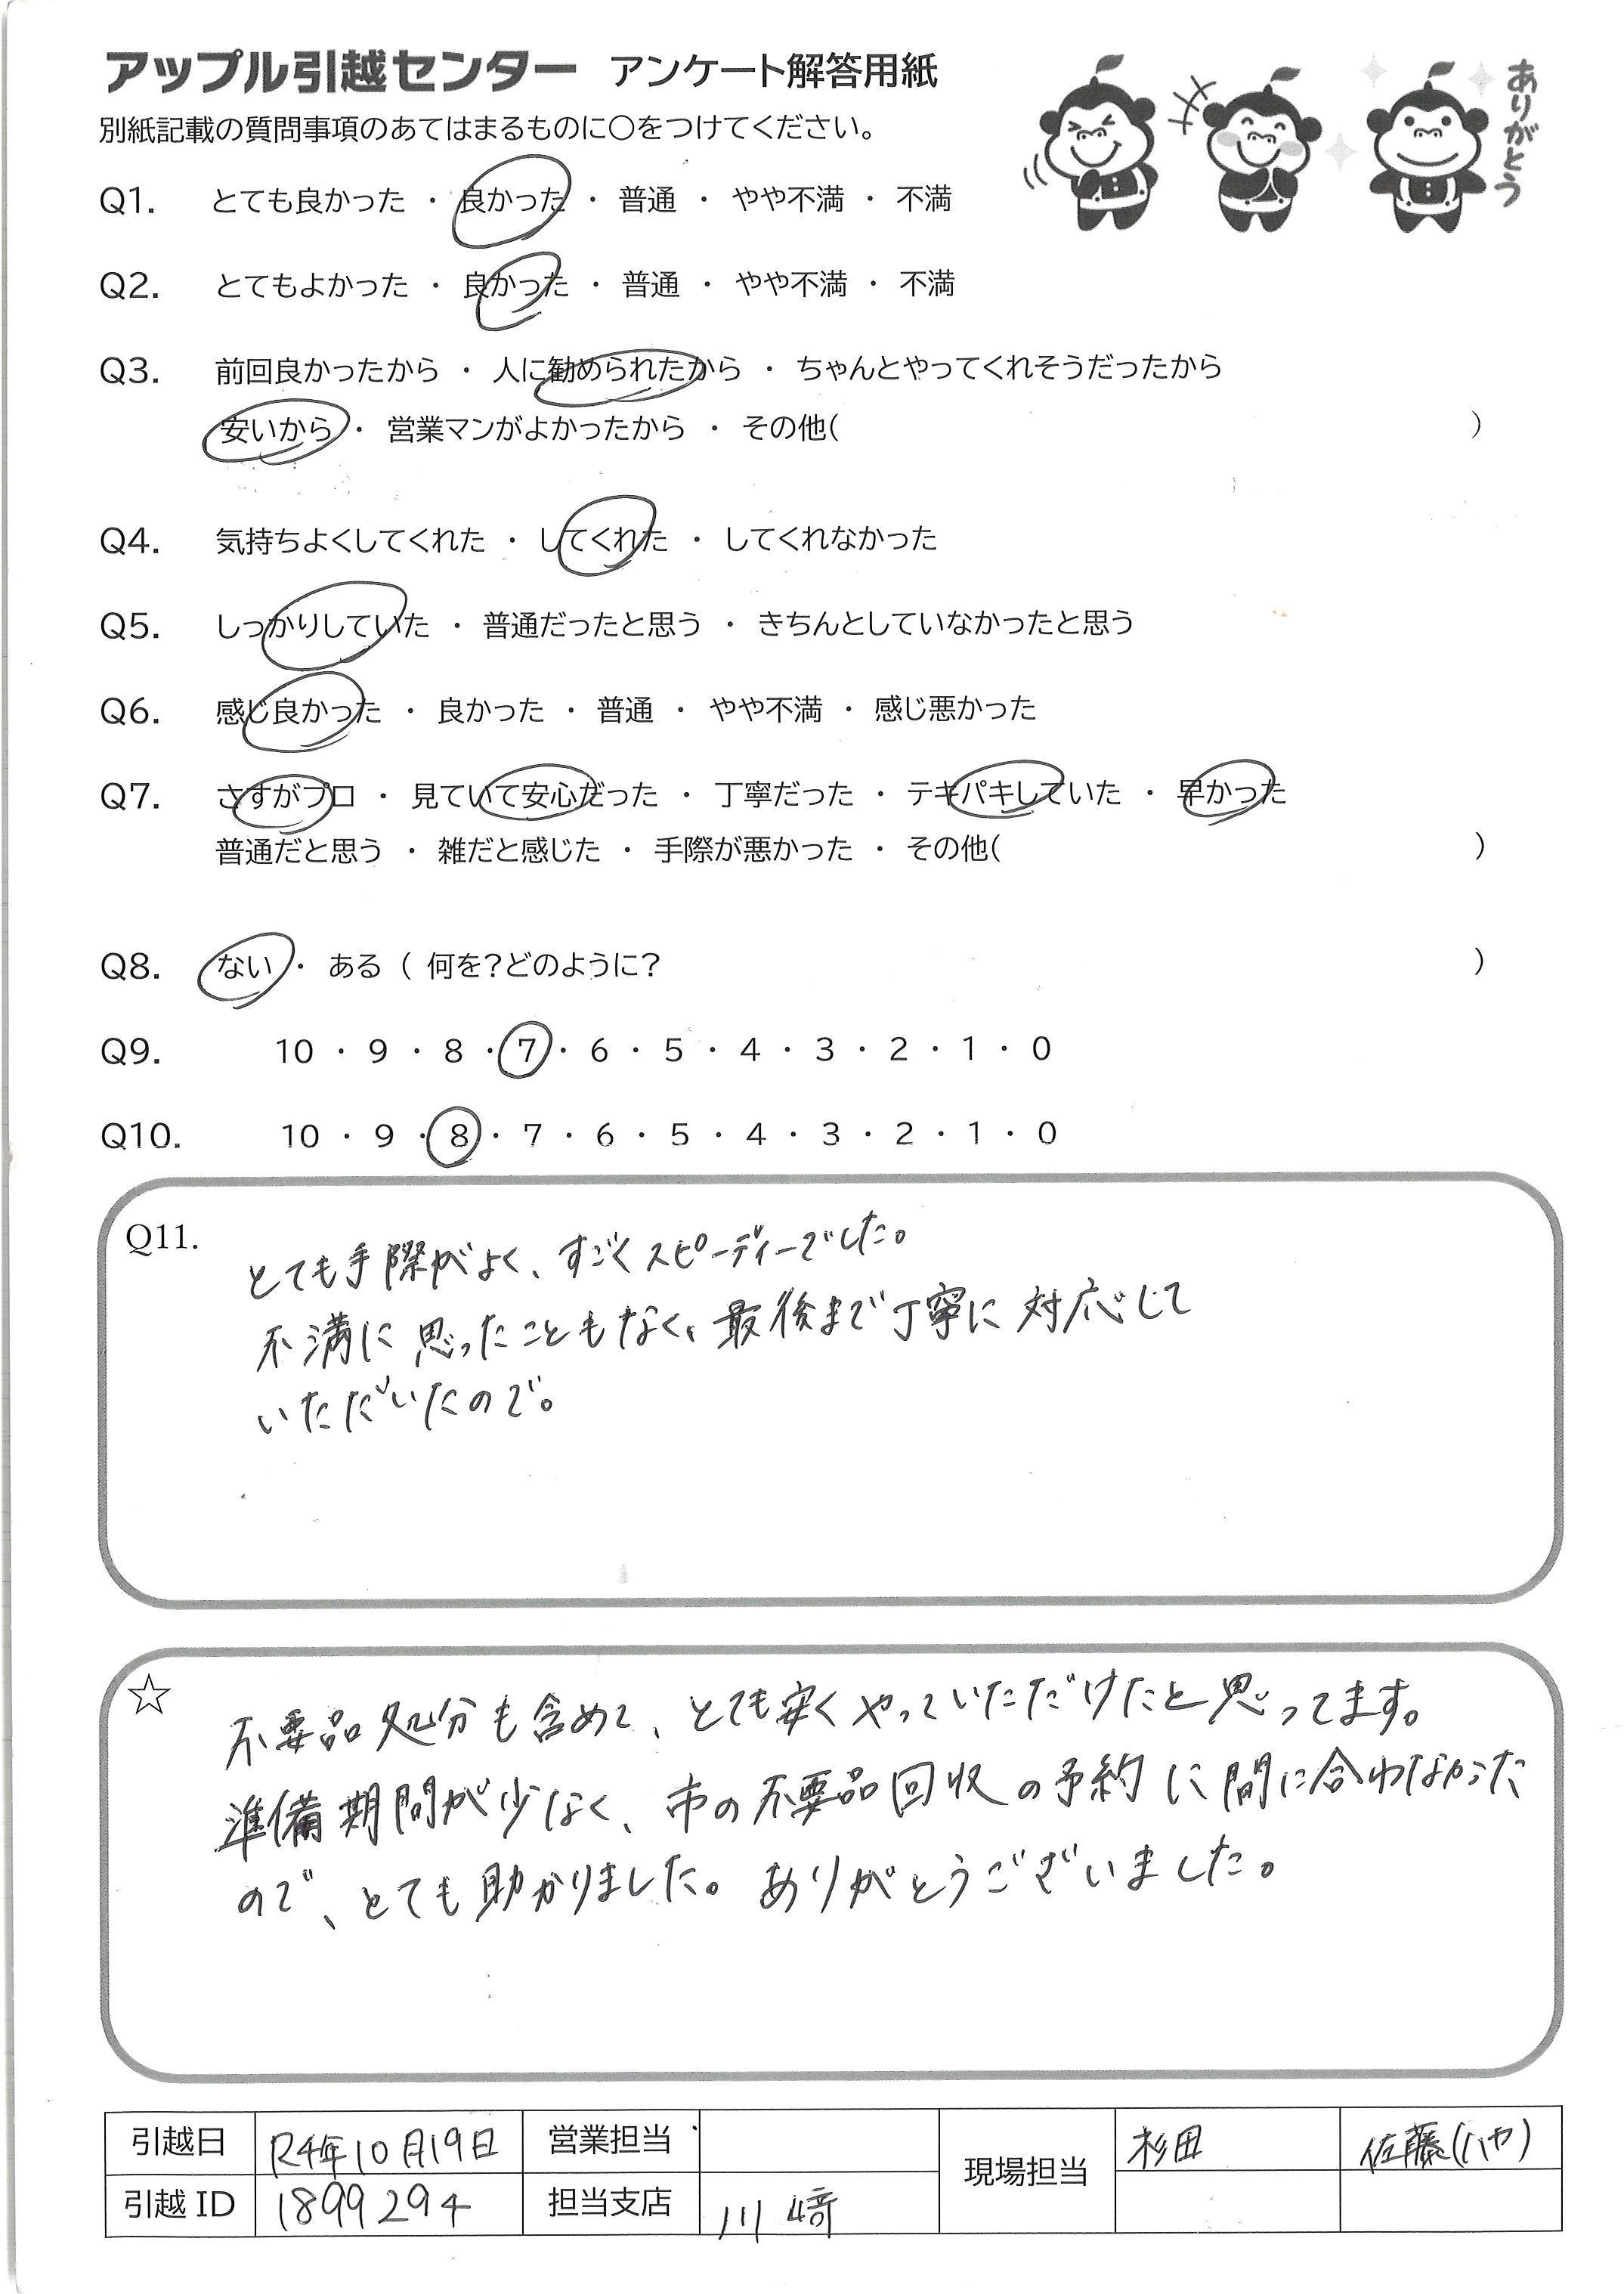 アップル引越センター アンケート解答用紙
ありがとう
別紙記載の質問事項のあてはまるものに〇をつけてください。
Q1. とても良かった ・ 良かった ・ 普通 ・ やや不満 ・ 不満
Q2. とてもよかった ・ 良かった ・ 普通 ・ やや不満 ・ 不満
Q3. 前回良かったから ・ 人に勧められたから ・ ちゃんとやってくれそうだったから
安いから ・ 営業マンがよかったから ・ その他( )
Q4. 気持ちよくしてくれた ・ してくれた ・ してくれなかった
Q5. しっかりしていた ・ 普通だったと思う ・ きちんとしていなかったと思う
Q6. 感じ良かった ・ 良かった ・ 普通 ・ やや不満 ・ 感じ悪かった
Q7. さすがプロ ・ 見ていて安心だった ・ 丁寧だった ・ テキパキしていた ・ 早かった
普通だと思う ・ 雑だと感じた ・ 手際が悪かった ・ その他( )
Q8. ない ・ ある ( 何を?どのように? )
Q9. 10 ・ 9 ・ 8 ・ 7 ・ 6 ・ 5 ・ 4 ・ 3 ・ 2 ・ 1 ・ 0
Q10. 10 ・ 9 ・ 8 ・ 7 ・ 6 ・ 5 ・ 4 ・ 3 ・ 2 ・ 1 ・ 0
Q11.
とても手際がよく、すごくスピーディーでした。
不満に思ったこともなく、最後まで丁寧に対応して
いただいたので。
☆
不要品処分も含めて、とても安くやっていただけたと思ってます。
準備期間が少なく、市の不要品回収の予約に間に合わなかった
ので、とても助かりました。ありがとうございました。
引越日 R4年10月19日 営業担当 現場担当 杉田 佐藤(ハヤ)
引越ID 1899294 担当支店 川崎